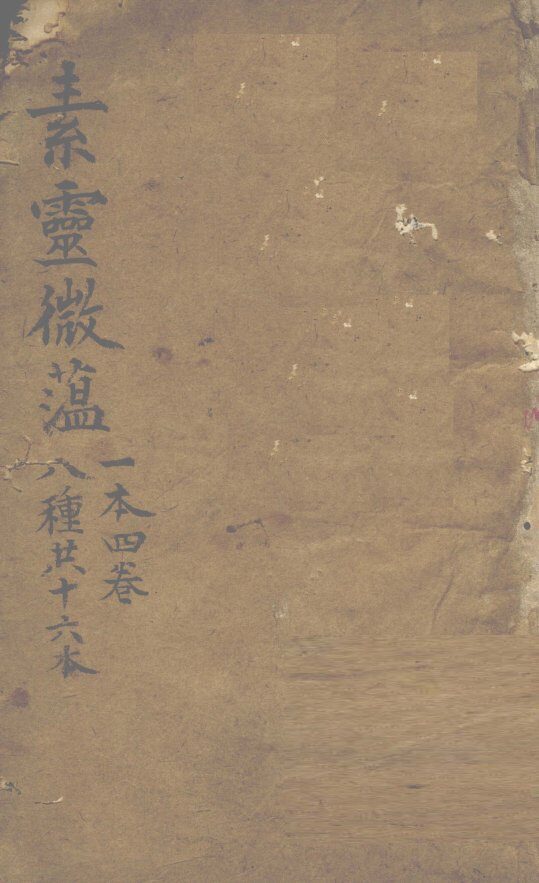 素靈微蕰
一本四卷
八種共十六本